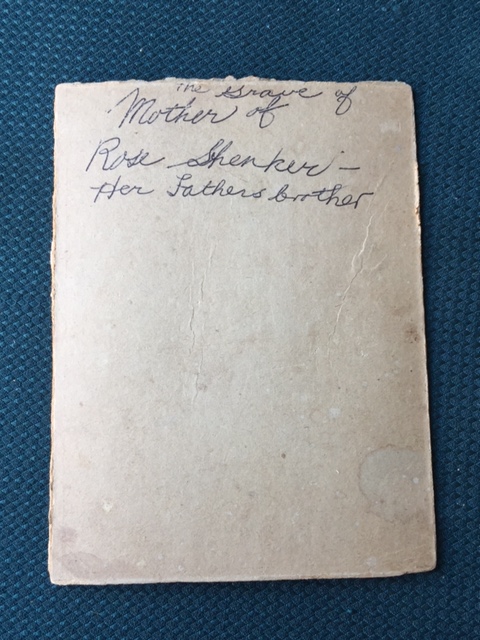 The Grave of
Mother of
Rose Shenker –
Her Fathers brother